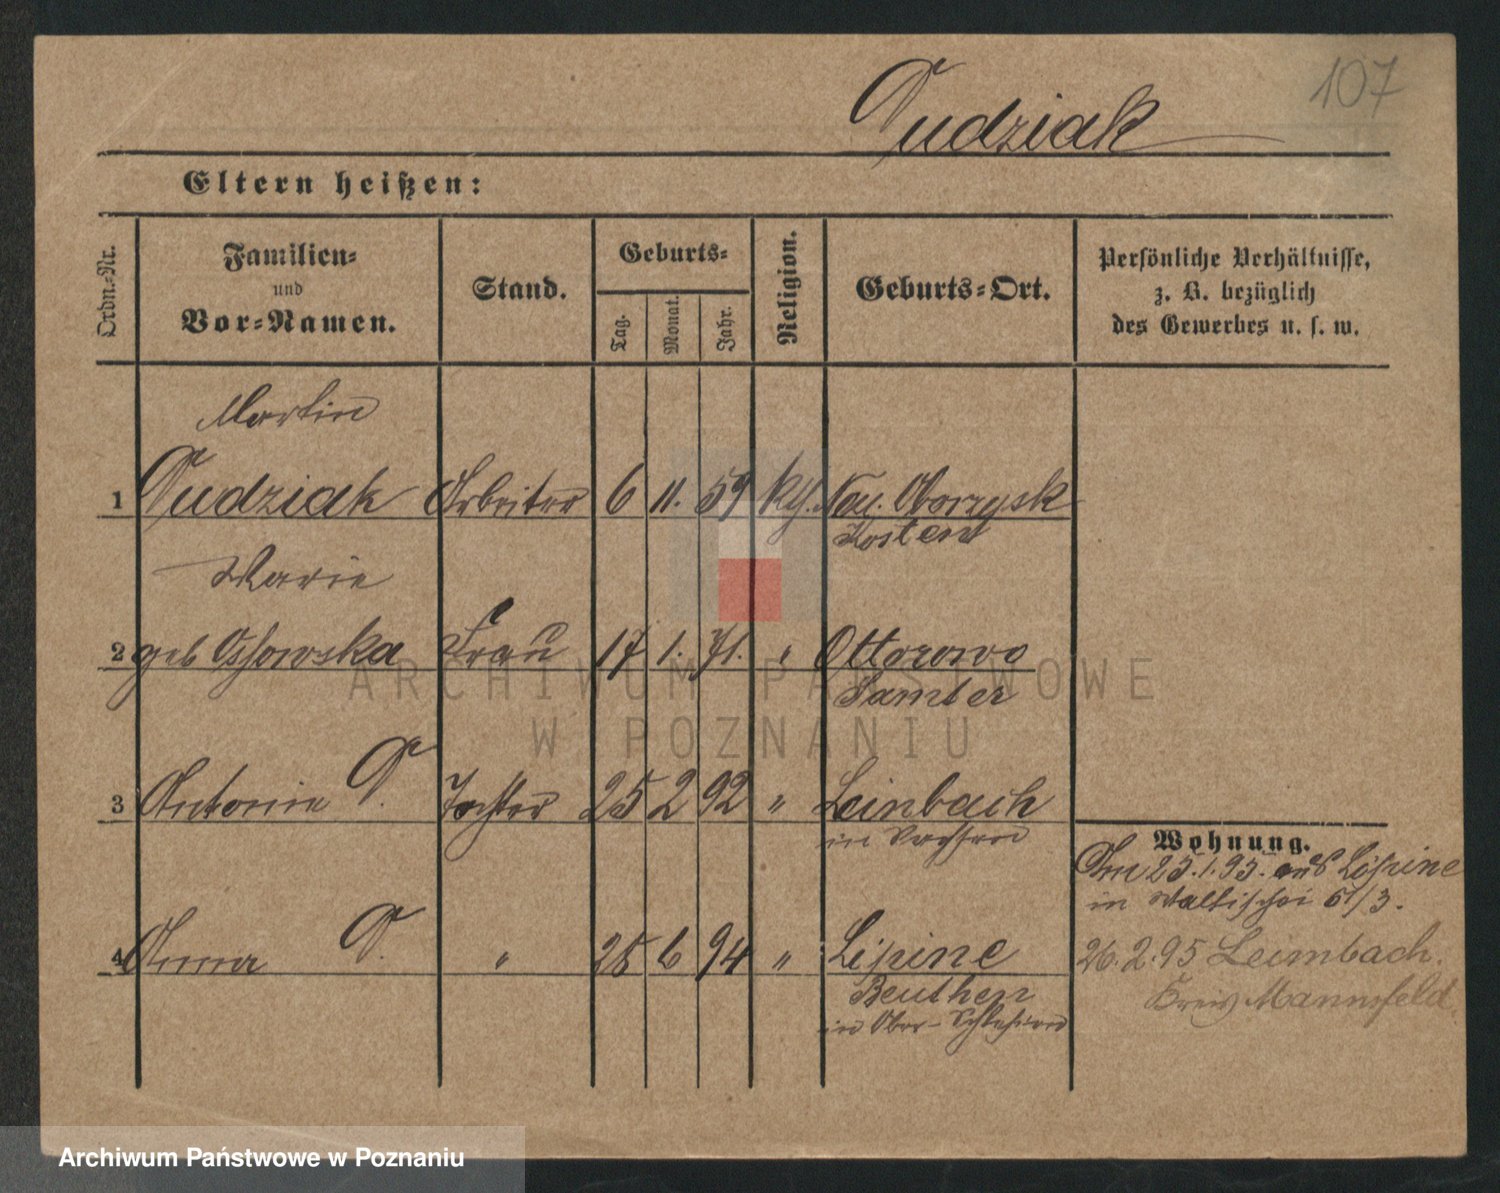 107
Dudziak
Eltern heißen:
Ordn.-Nr.
Familien-
und
Vor-Namen.
Stand.
Geburts-
Tag.
Monat.
Jahr.
Religion.
Geburts-Ort.
Persönliche Verhältnisse,
z. B. bezüglich
des Gewerbes u. s. w.
Martin
1 Dudziak Arbeiter 6 11. 59 Neu. Oborzysk
Kosten
Marie
2 geb Ossowska Frau 17 1. 71. " Ottorowo
Samter
3 Antonie D. Tochter 25 2 92 " Leinbach
in Sachsen
Wohnung.
Am 25.1.95. aus Lipine
in Wallischei 61/3.
4 Anna D. " 28 6 94 " Lipine
26.2.95 Leimbach.
Beuthen
Kreis Mannsfeld.
in Ober-Schlesien
ARCHIWUM PAŃSTWOWE
W POZNANIU
Archiwum Państwowe w Poznaniu